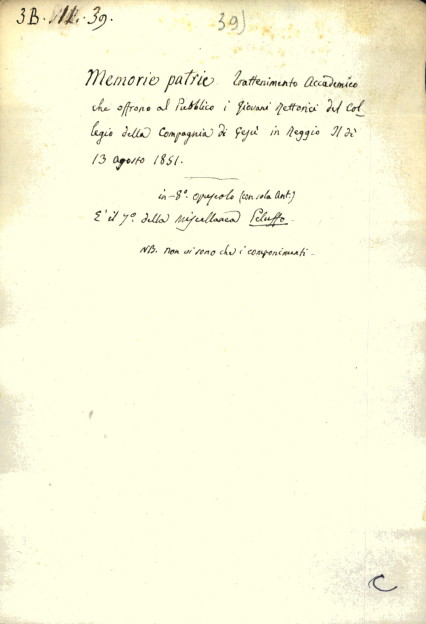 3B. III. 39.
39)
Memorie patrie. Trattenimento Accademico
che offrono al Pubblico i Giovani Rettorici del Col-
legio della Compagnia di Gesù in Reggio Il dì
13 agosto 1851.
in-8°. opuscolo (con sola Ant.)
E' il 7° della Miscellanea Peluffo.
NB. non vi sono che i componimenti.
C